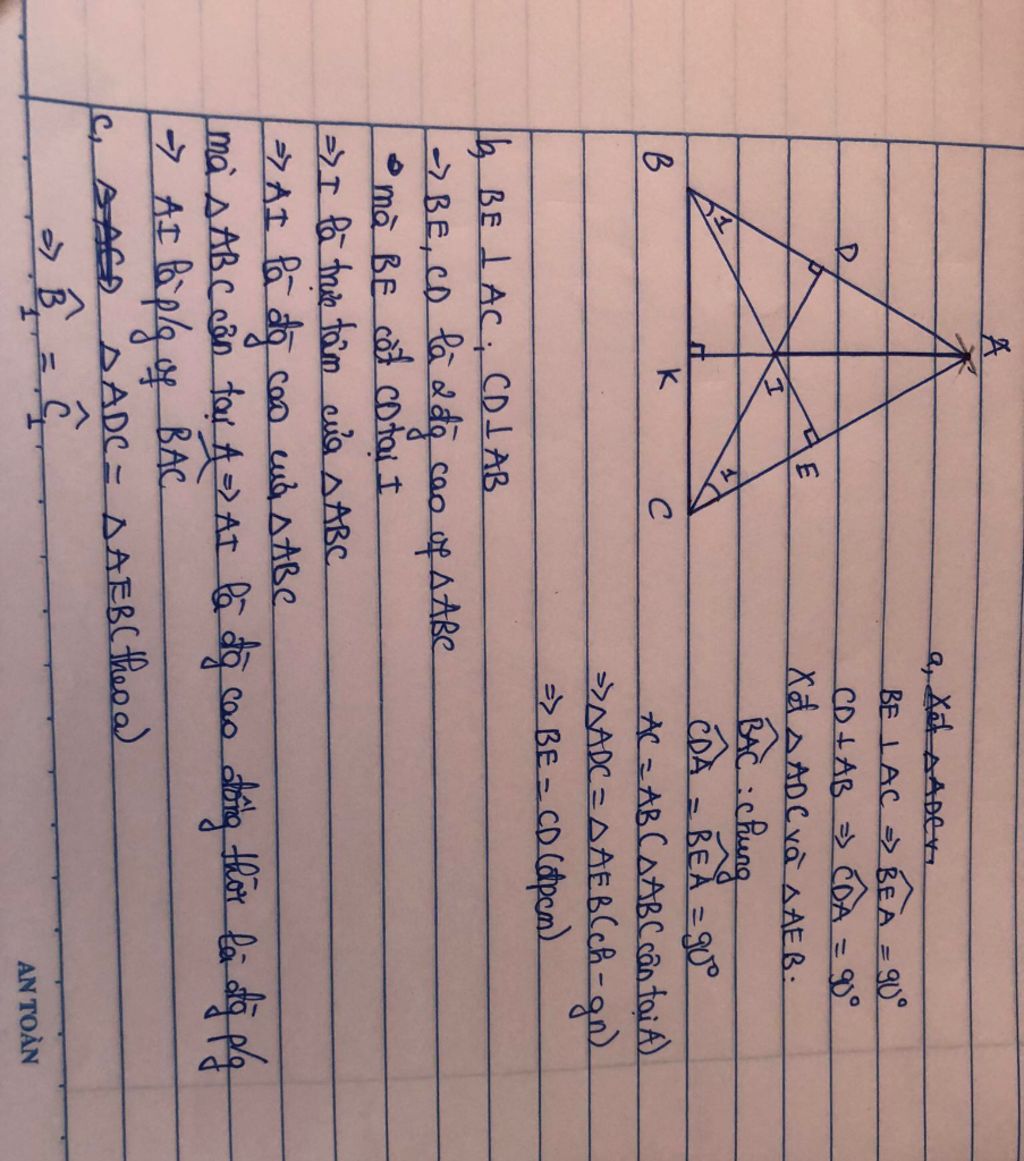 A
D
E
1
I
1
B
K
C
a, Xét △ADC v.
BE ⊥ AC ⇒ BEA = 90°
CD ⊥ AB ⇒ CDA = 90°
Xét △ADC và △AEB.
BAC : chung
CDA = BEA = 90°
AC = AB (△ABC cân tại A)
⇒ △ADC = △AEB (ch - gn)
⇒ BE = CD (đpcm)
b, BE ⊥ AC ; CD ⊥ AB
→ BE, CD là 2 đg cao of △ABC
mà BE cắt CD tại I
⇒ I là trực tâm của △ABC
⇒ AI là đg cao của △ABC
mà △ABC cân tại A ⇒ AI là đg cao đồng thời là đg p/g
→ AI là p/g of BAC
c, △ACD △ADC = △AEB (theo a)
⇒ B̂1 = Ĉ1
AN TOÀN